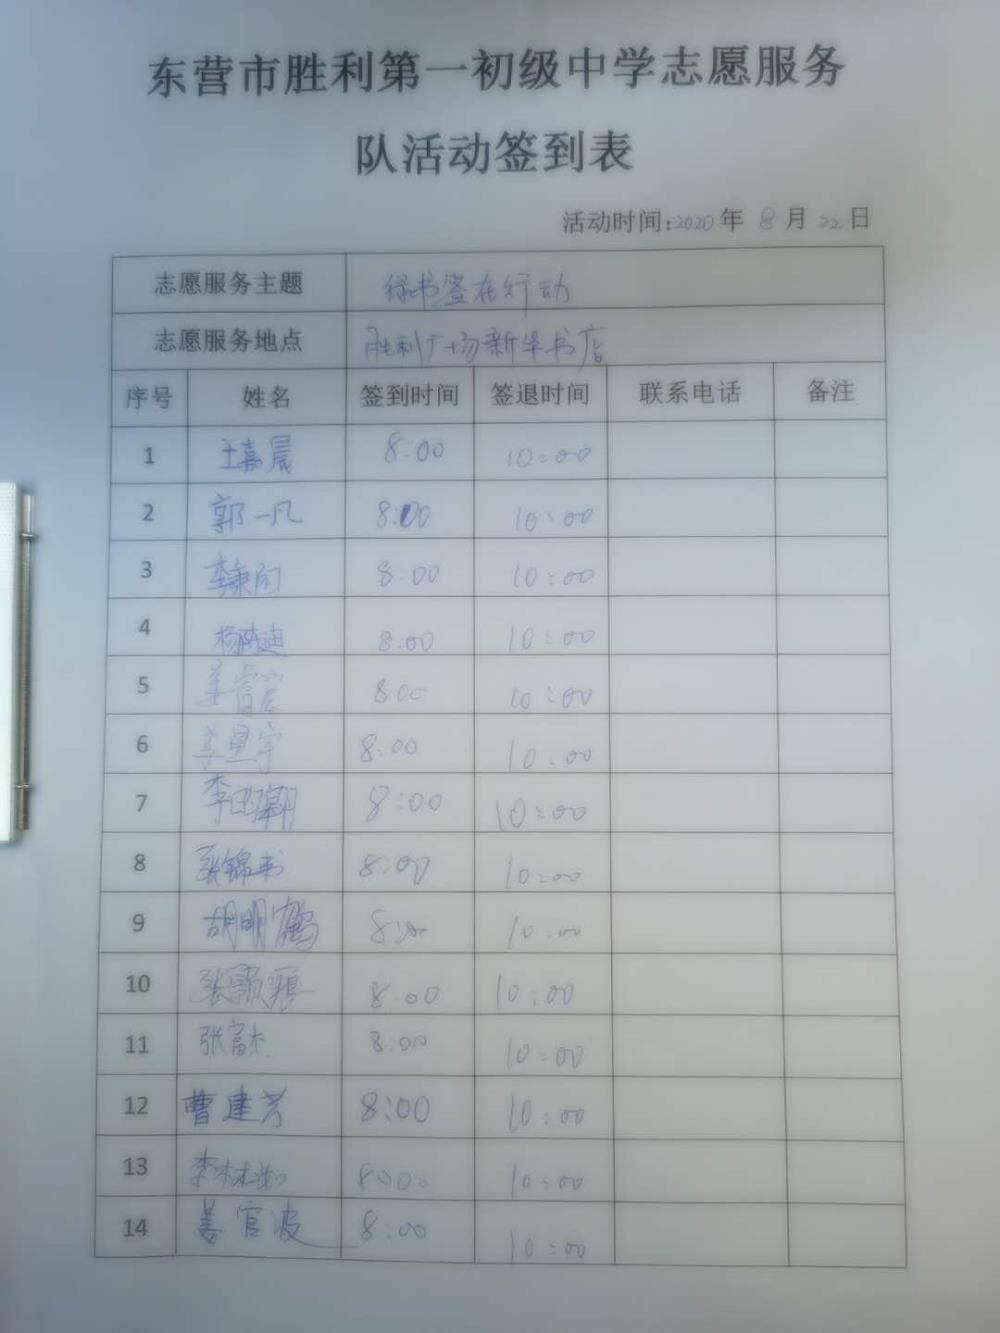 东营市胜利第一初级中学志愿服务
队活动签到表
活动时间:2020年 8月 22日
志愿服务主题 绿书签在行动
志愿服务地点 胜利广场新华书店
序号 姓名 签到时间 签退时间 联系电话 备注
1 王嘉晨 8:00 10:00
2 郭一凡 8:00 10:00
3 8:00 10:00
4 8:00 10:00
5 8:00 10:00
6 姜星宇 8:00 10:00
7 8:00 10:00
8 张锦书 8:00 10:00
9 胡明鹤 8:00 10:00
10 8:00 10:00
11 张富杰 8:00 10:00
12 曹建芳 8:00 10:00
13 8:00 10:00
14 姜官波 8:00 10:00